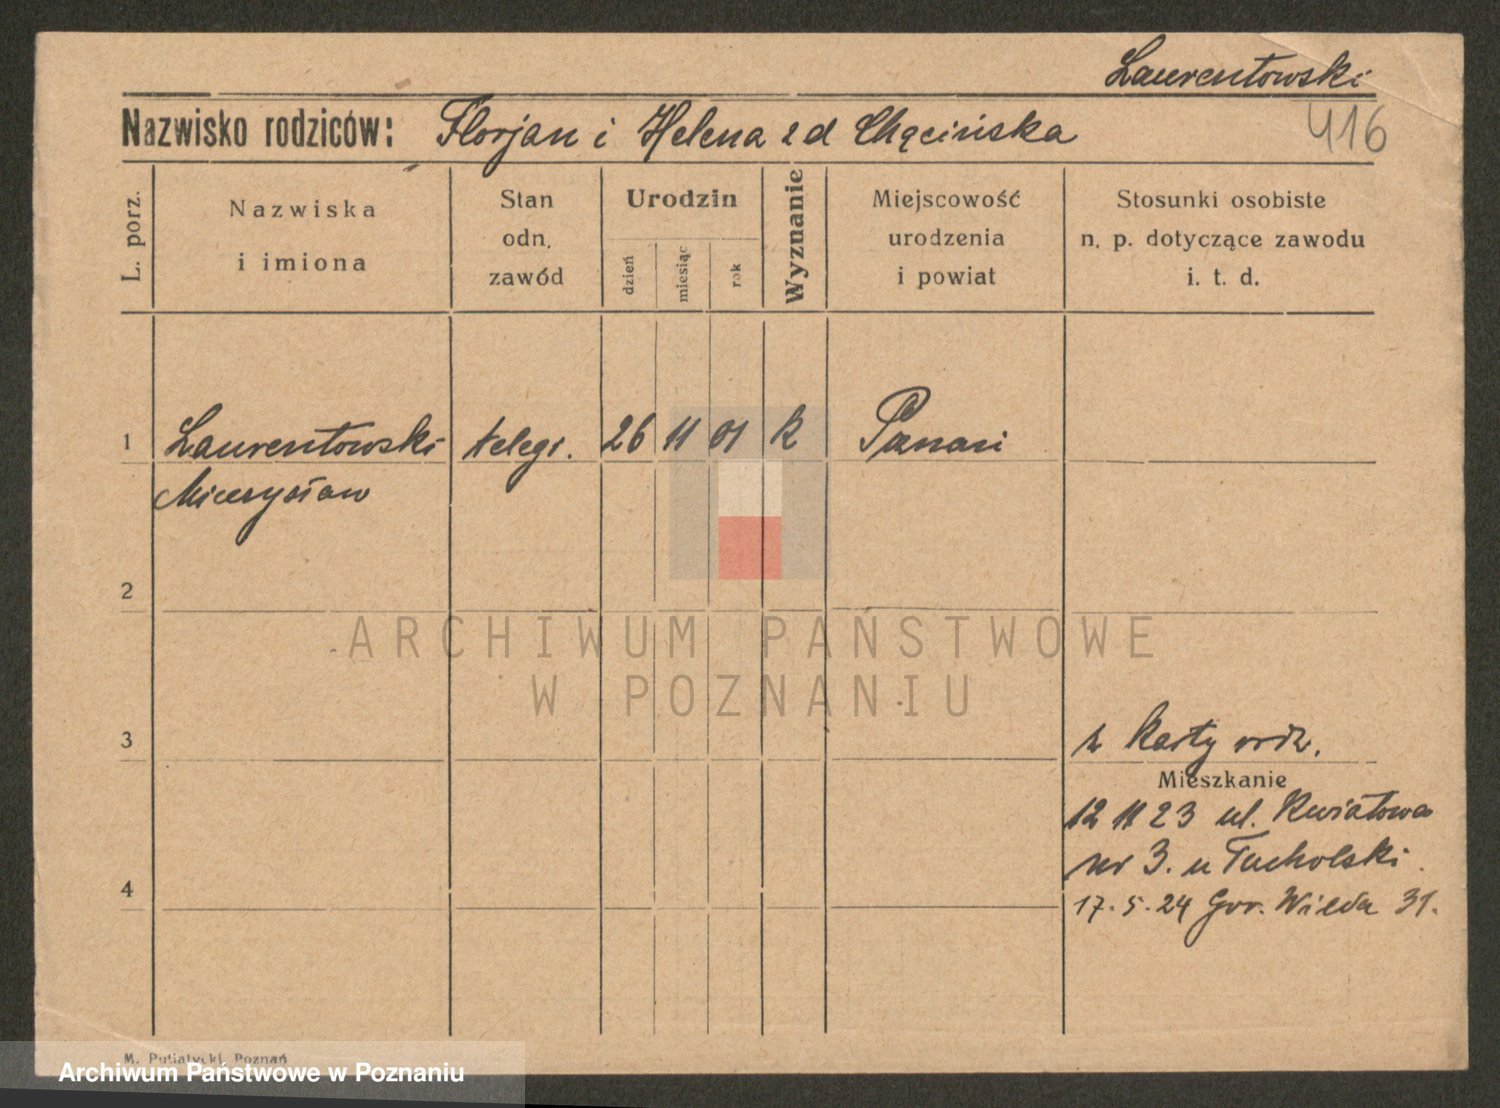 Laurentowski
416
Nazwisko rodziców: Florjan i Helena zd Chęcińska
L. porz.
Nazwiska
i imiona
Stan
odn.
zawód
Urodzin
dzień
miesiąc
rok
Wyznanie
Miejscowość
urodzenia
i powiat
Stosunki osobiste
n. p. dotyczące zawodu
i. t. d.
1 Laurentowski telegr. 26 11 01 k
Mieczysław
2
ARCHIWUM PAŃSTWOWE
W POZNANIU
3
z karty rodz.
Mieszkanie
12 11 23 ul. Kwiatowa
nr 3. u Tucholski.
4
17.5.24 Gór. Wilda 31.
M. Putiatycki, Poznań
Archiwum Państwowe w Poznaniu